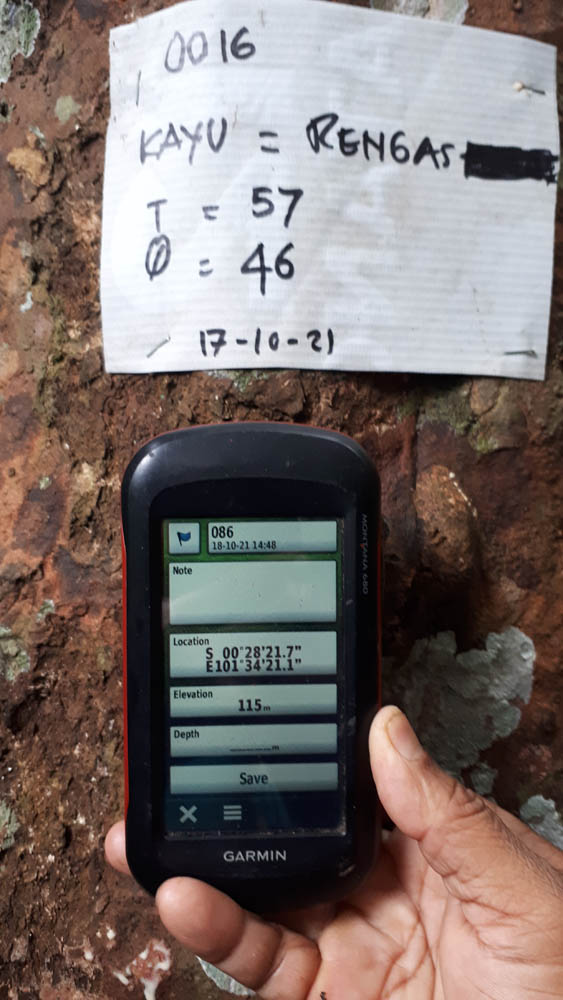 0016
KAYU = RENGAS
T = 57
Ø = 46
17-10-21
MONTANA 680
086
18-10-21 14:48
Note
Location
S 00°28'21.7"
E101°34'21.1"
Elevation
115m
Depth
______m
Save
GARMIN